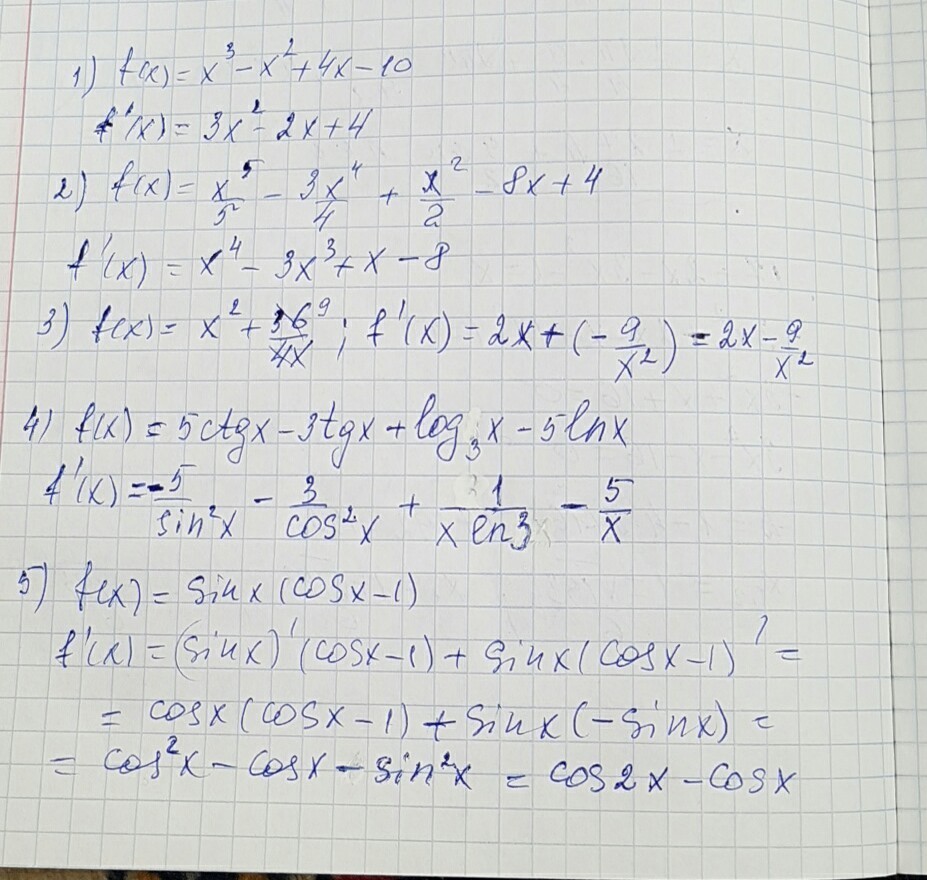 1) f(x) = x³ - x² + 4x - 10
f'(x) = 3x² - 2x + 4
2) f(x) = x⁵/5 - 3x⁴/4 + x²/2 - 8x + 4
f'(x) = x⁴ - 3x³ + x - 8
3) f(x) = x² + 36⁹/4x ; f'(x) = 2x + (-9/x²) = 2x - 9/x²
4) f(x) = 5ctgx - 3tgx + log₃x - 5lnx
f'(x) = -5/sin²x - 3/cos²x + 1/x ln3 - 5/x
5) f(x) = sinx(cosx-1)
f'(x) = (sinx)'(cosx-1) + sinx(cosx-1)' =
= cosx(cosx-1) + sinx(-sinx) =
= cos²x - cosx - sin²x = cos2x - cosx